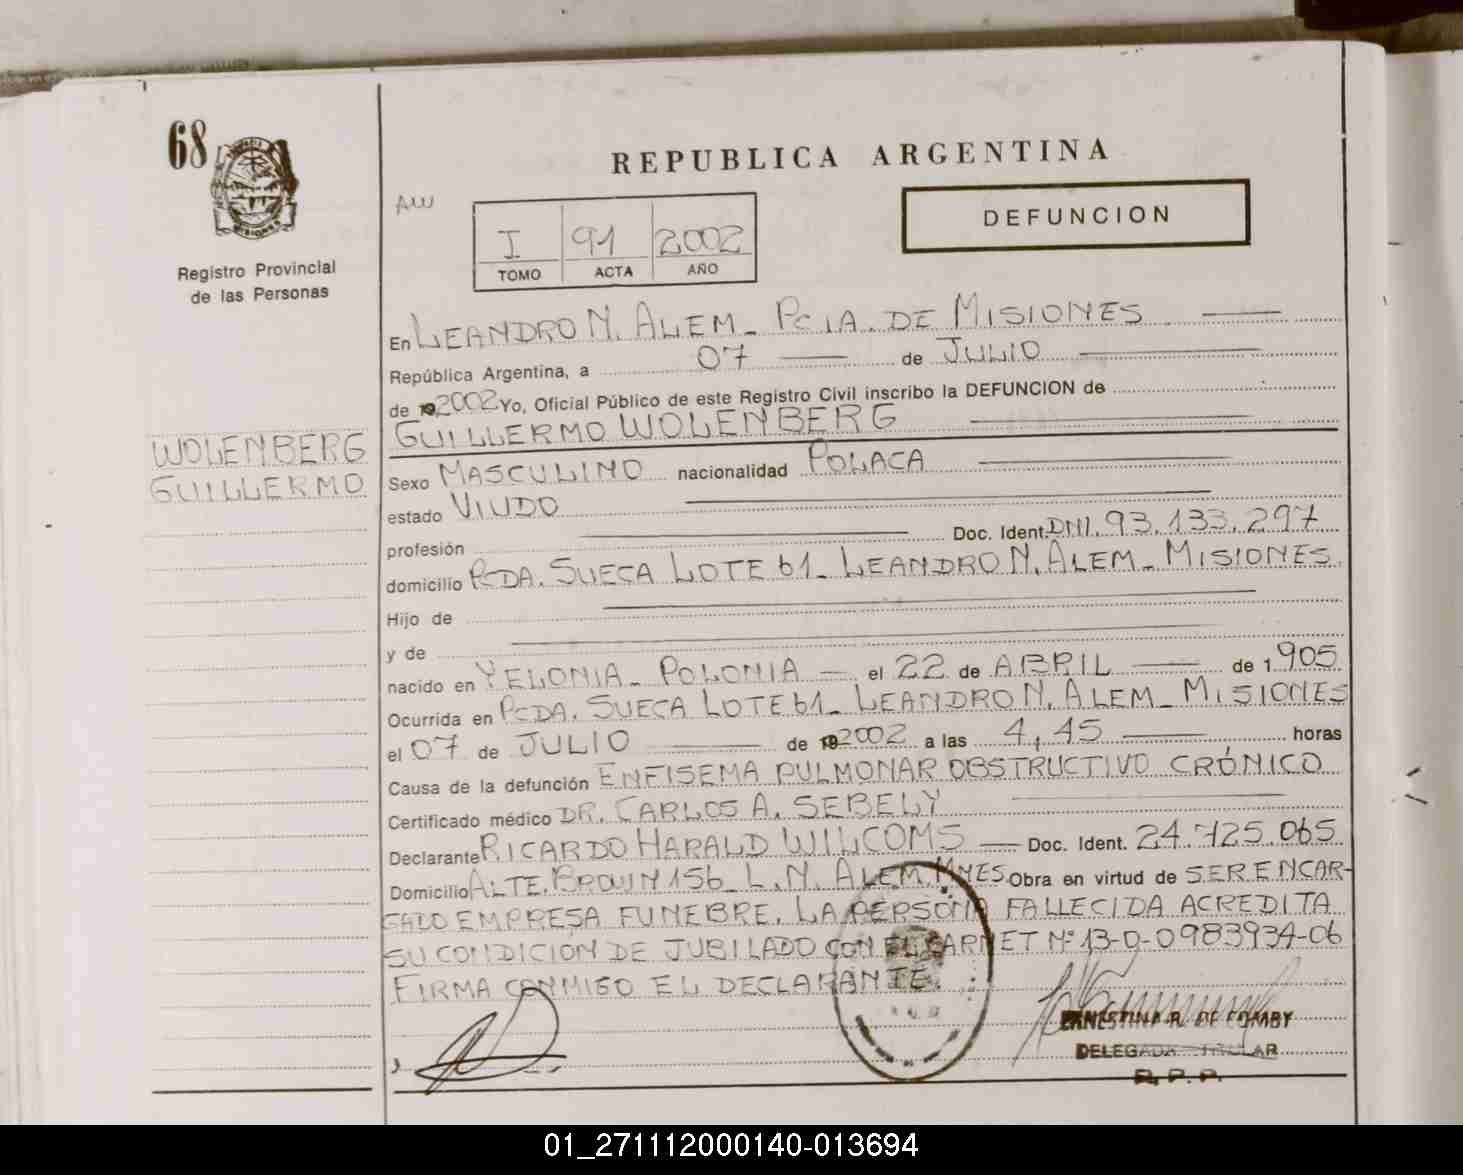 68
REPUBLICA ARGENTINA
AW
DEFUNCION
I 91 2002
TOMO ACTA AÑO
MISIONES
Registro Provincial
de las Personas
En LEANDRO N. ALEM_ PCIA. DE MISIONES
República Argentina, a 07 de JULIO
de 19 2002 Yo, Oficial Público de este Registro Civil inscribo la DEFUNCION de
GUILLERMO WOLENBERG
WOLENBERG
GUILLERMO
Sexo MASCULINO nacionalidad POLACA
estado VIUDO
profesión Doc. Ident. DNI. 93.133.297
domicilio PCDA. SUECA LOTE 61_ LEANDRO N. ALEM_ MISIONES.
Hijo de
y de
nacido en YELONIA_ POLONIA el 22 de ABRIL de 1.905
Ocurrida en PCDA. SUECA LOTE 61_ LEANDRO N. ALEM_ MISIONES
el 07 de JULIO de 19 2002 a las 4,45 horas
Causa de la defunción ENFISEMA PULMONAR OBSTRUCTIVO CRÓNICO
Certificado médico DR. CARLOS A. SEBELY
Declarante RICARDO HARALD WILCOMS Doc. Ident. 24.725.065
Domicilio ALTE. BROWN 156_ L.N. ALEM. MNES. Obra en virtud de SER ENCAR-
GADO EMPRESA FUNEBRE. LA PERSONA FALLECIDA ACREDITA
SU CONDICION DE JUBILADO CON EL CARNET Nº 13-0-0983934-06
FIRMA CONMIGO EL DECLARANTE.
ERNESTINA R. DE COMBY
DELEGADA TITULAR
R. P. P.
01_271112000140-013694